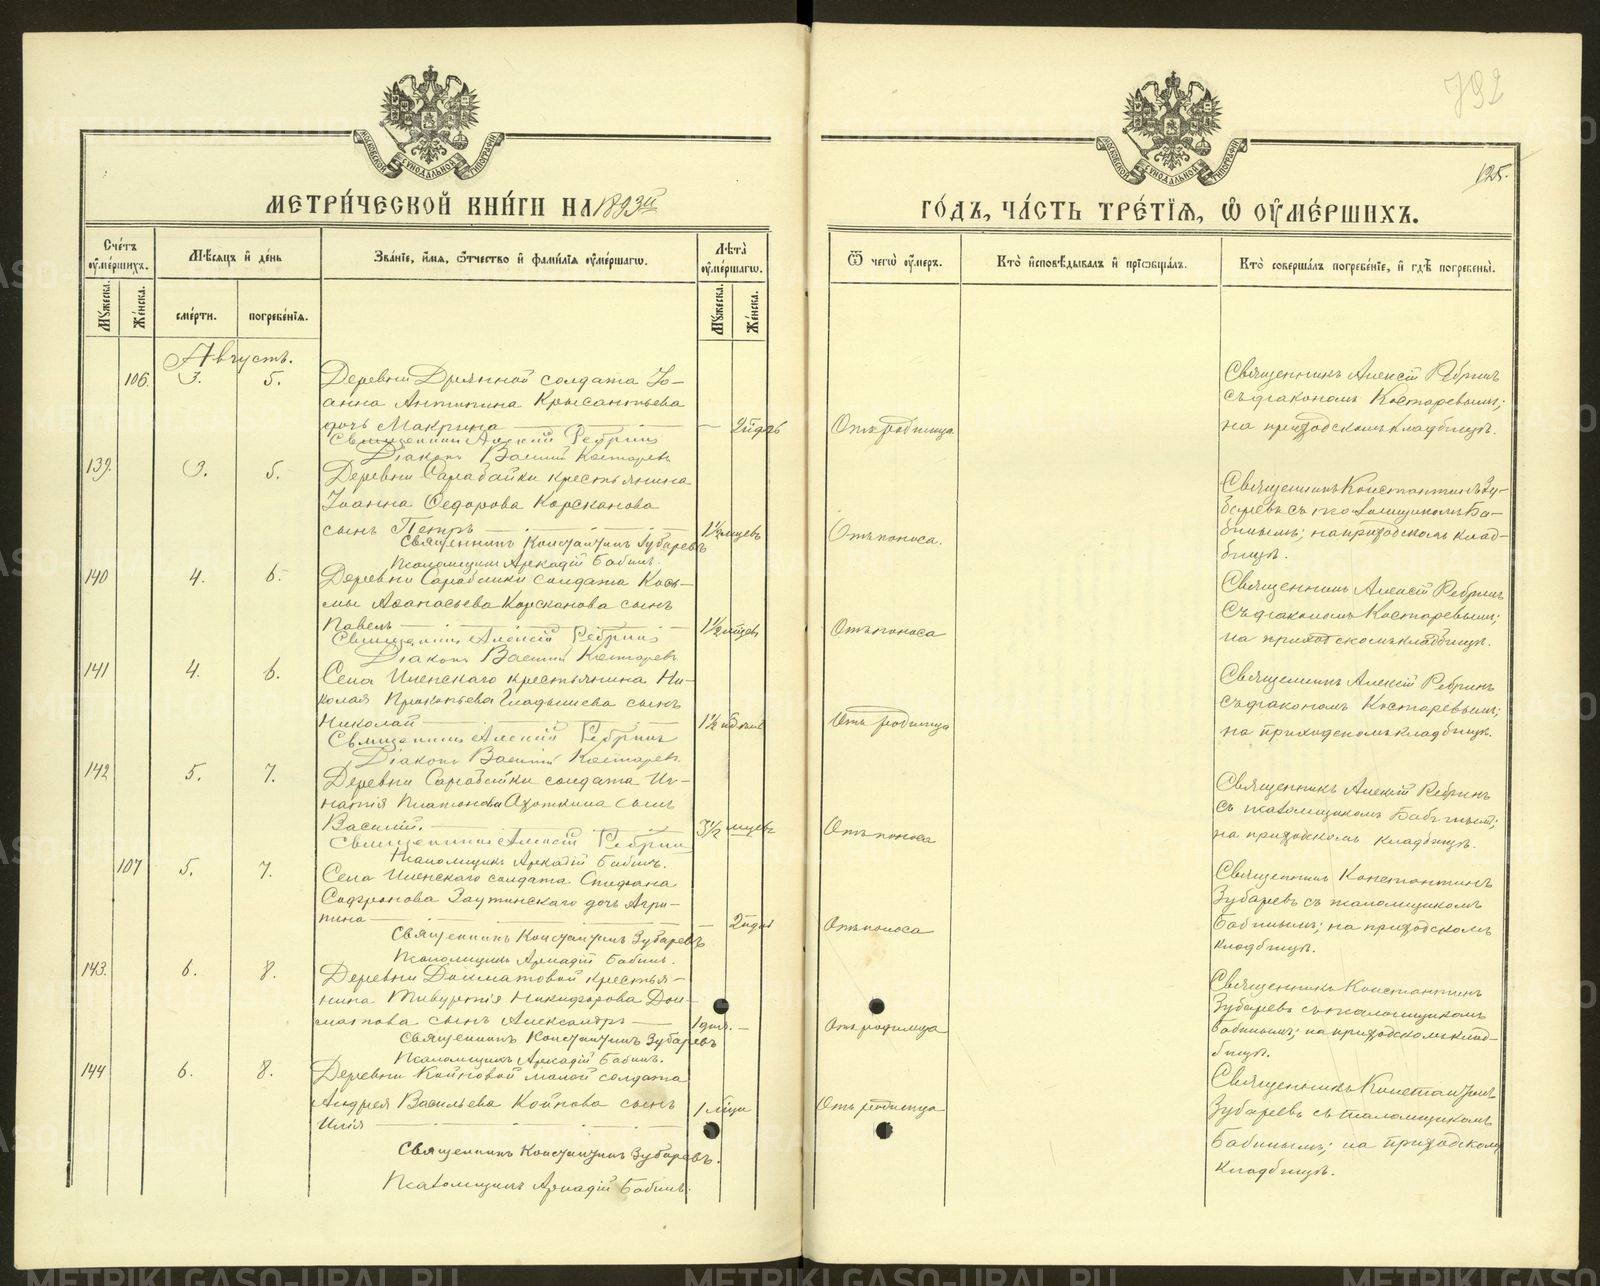 792
125.
МОСКОВСКОЙ СѴНОДАЛЬНОЙ ТИПОГРАФІИ
МОСКОВСКОЙ СѴНОДАЛЬНОЙ ТИПОГРАФІИ
МЕТРИ́ЧЕСКОЙ КНИ́ГИ НА 1893й
ГО́ДЪ, ЧА́СТЬ ТРЕ́ТІѦ, Ѡ҆ ОУ҆МЕ́РШИХЪ.
Сче́тъ оу҆ме́ршихъ.
Мѣ́сяцъ и҆ де́нь
Зва́нїе, и҆́мя, ѻ҆́тчество и҆ фами́лїя оу҆ме́ршагѡ.
Лѣ́та оу҆ме́ршагѡ.
Ѿ чегѡ̀ оу҆́меръ.
Кто̀ и҆сповѣ́дывалъ и҆ прїѡбща́лъ.
Кто̀ соверша́лъ погребе́нїе, и҆ гдѣ̀ погребены̀.
Мꙋ́жеска.
Же́нска.
сме́рти.
погребе́нїя.
Мꙋ́жеска.
Же́нска.
Августъ.
106. 3. 5.
Деревни Дрянной солдата Іо-
анна Антипина Крысантьева
дочь Макрина — 2 нѣд
Священникъ Алексій Ребринъ
Діаконъ Василій Костаревъ
Отъ родимца.
Священникъ Алексій Ребринъ
съ діакономъ Костаревымъ;
на приходскомъ кладбищѣ.
139. 3. 5.
Деревни Сарабайки крестьянина
Іоанна Ѳедорова Корсканова
сынъ Петръ — 1½ мцевъ
Священникъ Константинъ Зубаревъ
Псаломщикъ Аркадій Бабинъ.
Отъ поноса.
Священникъ Константинъ Зу-
баревъ съ псаломщикомъ Ба-
бинымъ; на приходскомъ клад-
бищѣ.
140 4. 6.
Деревни Сарабайки солдата Кось-
мы Аѳанасьева Корсканова сынъ
Павелъ — 1½
Священникъ Алексій Ребринъ
Діаконъ Василій Костаревъ
Отъ поноса
Священникъ Алексій Ребринъ
съ діакономъ Костаревымъ;
на приходскомъ кладбищѣ.
141 4. 6.
Села крестьянина Ни-
колая Прокопьева Гладышева сынъ
Николай — 1½
Священникъ Алексій Ребринъ
Діаконъ Василій Костаревъ
Отъ родимца
Священникъ Алексій Ребринъ
съ діакономъ Костаревымъ;
на приходскомъ кладбищѣ.
142 5. 7.
Деревни Сарабайки солдата Иг-
натія Платонова сынъ
Василій. — 3½ мцевъ
Священникъ Алексій Ребринъ
Псаломщикъ Аркадій Бабинъ.
Отъ поноса
Священникъ Алексій Ребринъ
съ псаломщикомъ Бабинымъ;
на приходскомъ кладбищѣ.
107 5. 7.
Села солдата Стефана
Софронова Заутинскаго дочь Агри-
пина — 2
Священникъ Константинъ Зубаревъ
Псаломщикъ Аркадій Бабинъ.
Отъ поноса
Священникъ Константинъ
Зубаревъ съ псаломщикомъ
Бабинымъ; на приходскомъ
кладбищѣ.
143. 6. 8.
Деревни Долматовой крестья-
нина Тивуртія Никифорова Дол-
матова сынъ Александръ — 1
Священникъ Константинъ Зубаревъ
Псаломщикъ Аркадій Бабинъ.
Отъ родимца
Священникъ Константинъ
Зубаревъ съ псаломщикомъ
Бабинымъ; на приходскомъ клад-
бищѣ.
144 6. 8.
Деревни Койновой малой солдата
Андрея Васильева Койнова сынъ
Илія — 1
Священникъ Константинъ Зубаревъ.
Псаломщикъ Аркадій Бабинъ.
Отъ родимца
Священникъ Константинъ
Зубаревъ съ псаломщикомъ
Бабинымъ; на приходскомъ
кладбищѣ.
METRIKI.GASO-URAL.RU